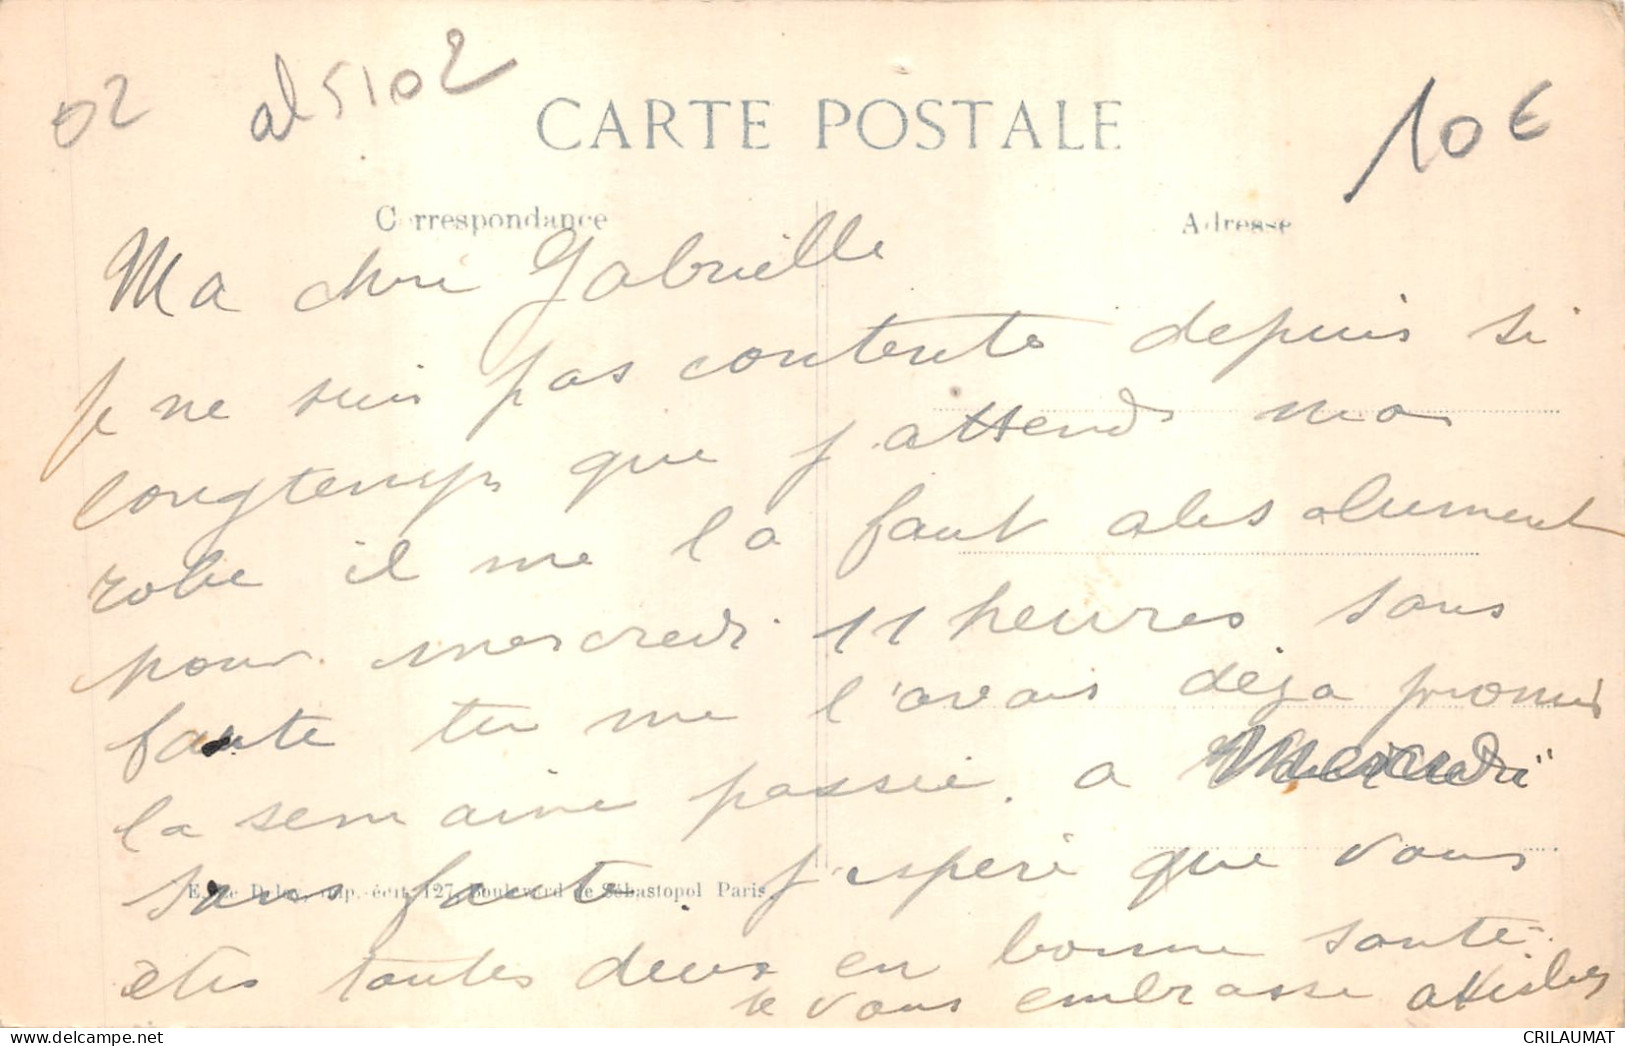 02
al 5102
10€
CARTE POSTALE
Correspondance
Adresse
Ma chere Gabrielle
je ne suis pas contente depuis si
longtemps que j attends ma
robe il me la faut absolument
pour mercredi 11 heures sans
faute tu me l'avais deja promis
la semaine passée. a Mercredi
sans faute. j'espere que vous
êtes toutes deux en bonne santé.
je vous embrasse
imp.-édit. 127, Boulevard de Sébastopol Paris
CRILAUMAT